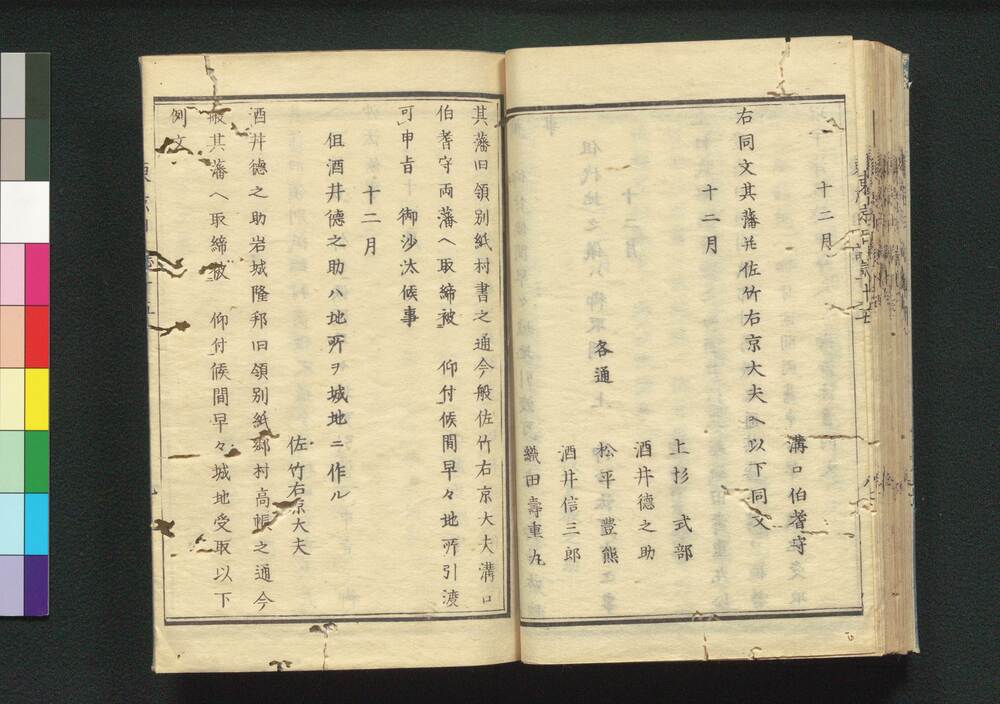 十二月
溝口伯耆守
右同文其藩幷佐竹右京大夫へ以下同文
十二月
上杉式部
酒井德之助
各通 松平豊熊
酒井信三郎
織田壽重丸
其藩旧領別紙村書之通今般佐竹右京大夫溝口
伯耆守両藩へ取締被 仰付候間早々地所引渡
可申旨 御沙汰候事
十二月
但酒井德之助ハ地所ヲ城地ニ作ル
佐竹右京大夫
酒井德之助岩城隆邦旧領別紙郷村高帳之通今
般其藩へ取締被 仰付候間早々城地受取以下
例文